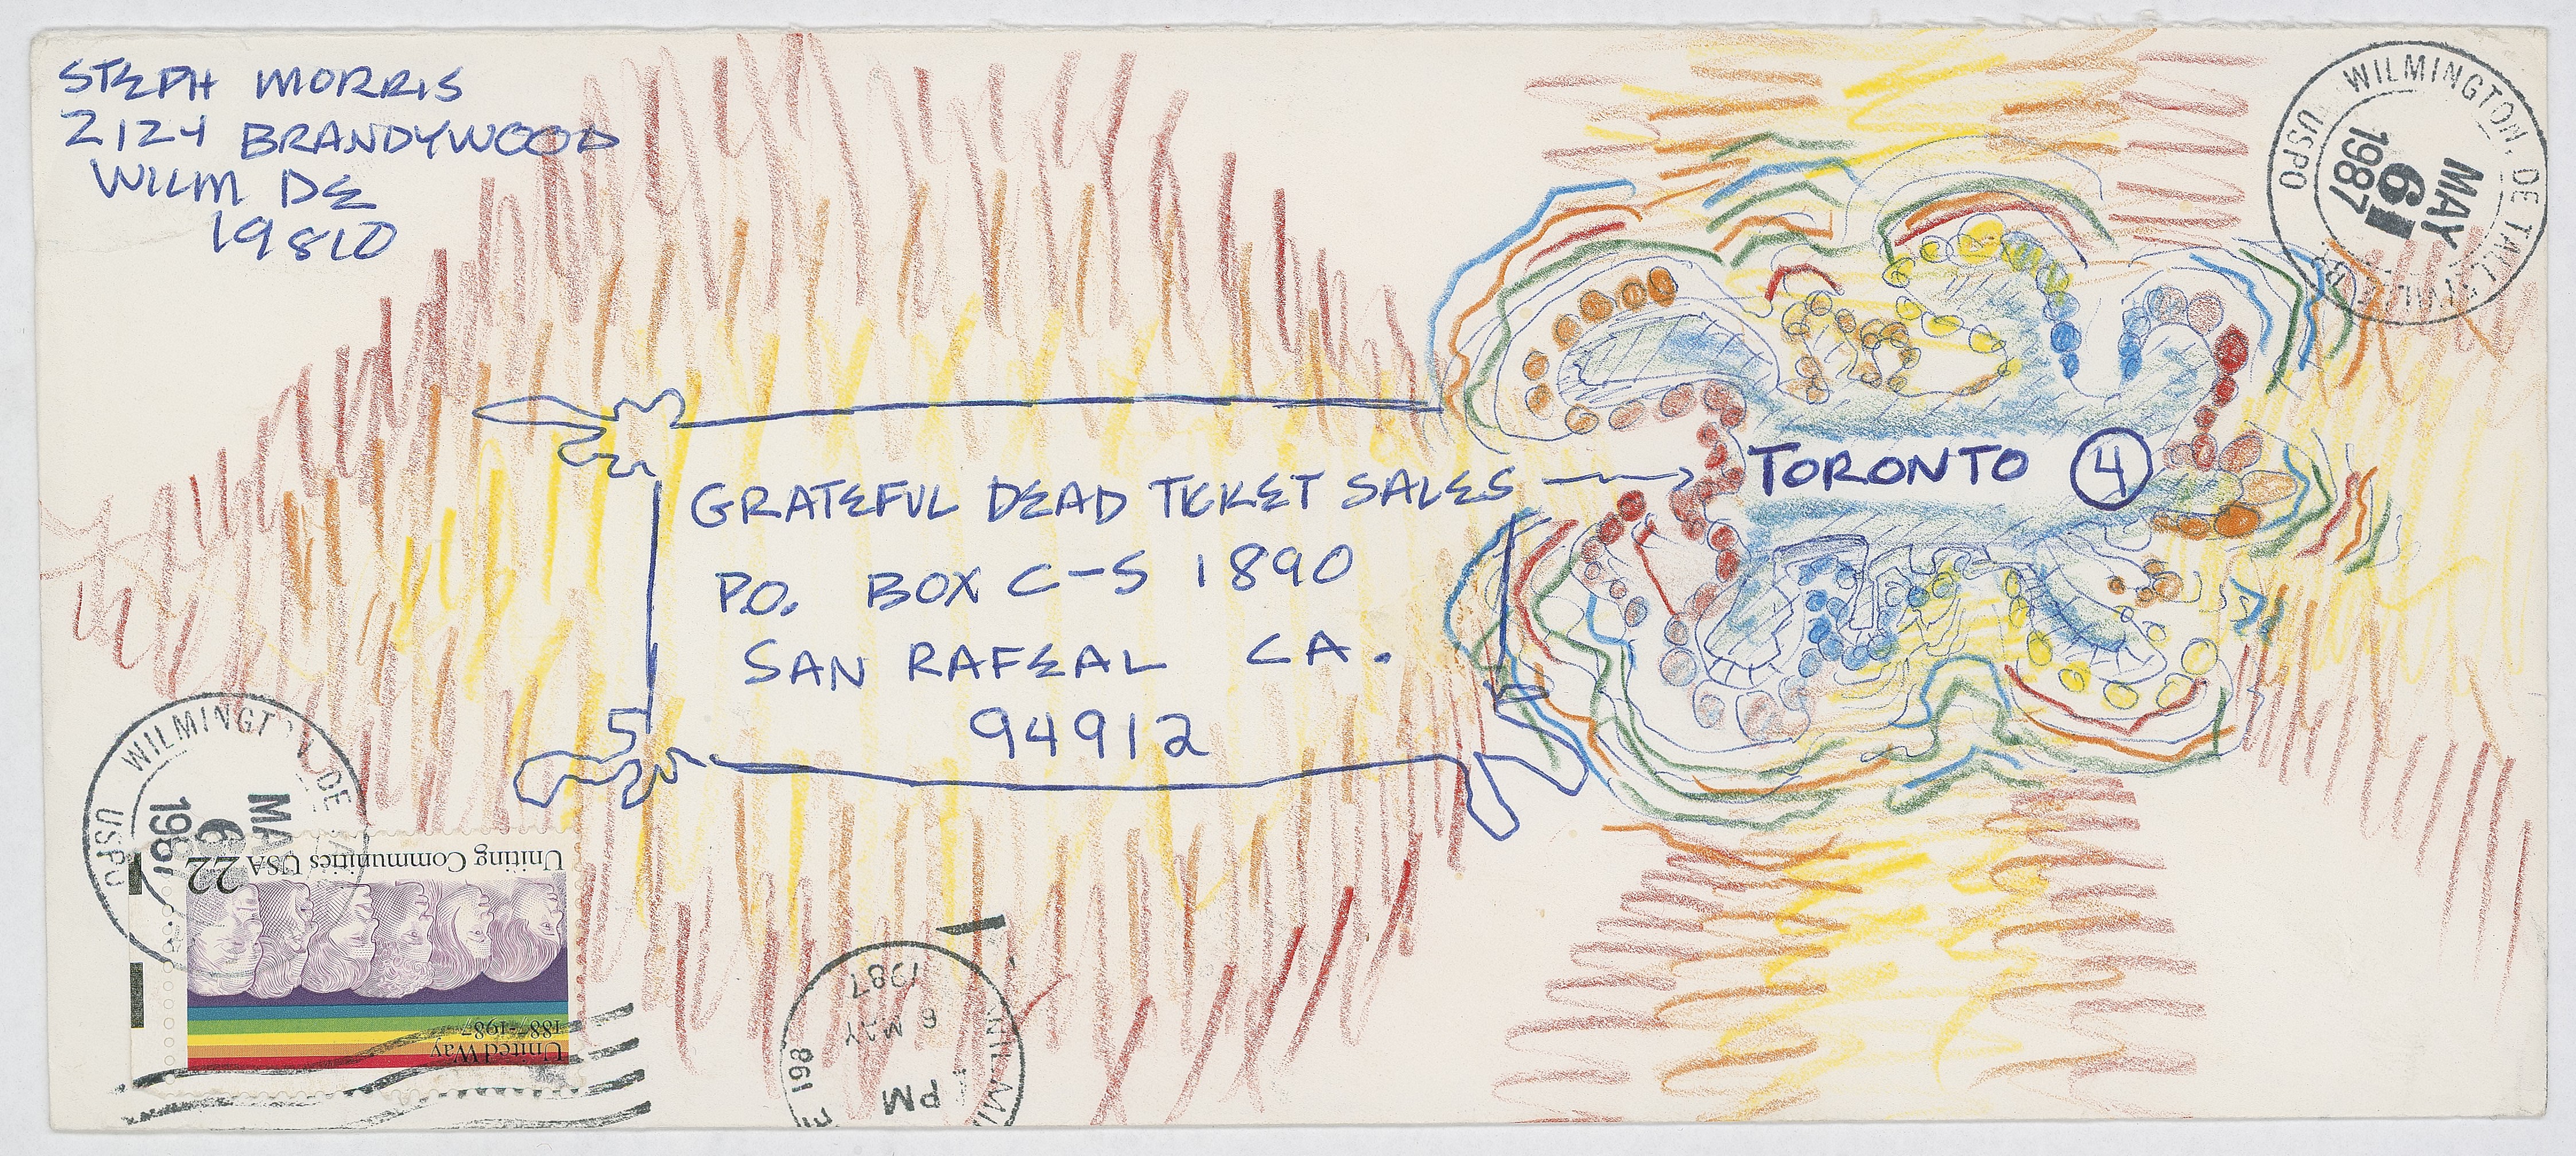 STEPH MORRIS
2124 BRANDYWOOD
WILM DE
19810
WILMINGTON, DE
USPO
MAY
6
1987
GRATEFUL DEAD TICKET SALES → TORONTO 4
P.O. BOX C-S 1890
SAN RAFEAL CA.
94912
WILMINGTON, DE
USPO
MAY
6
1987
Uniting Communities USA 22
1887-1987
United Way
PM
6 MAY
1987
198